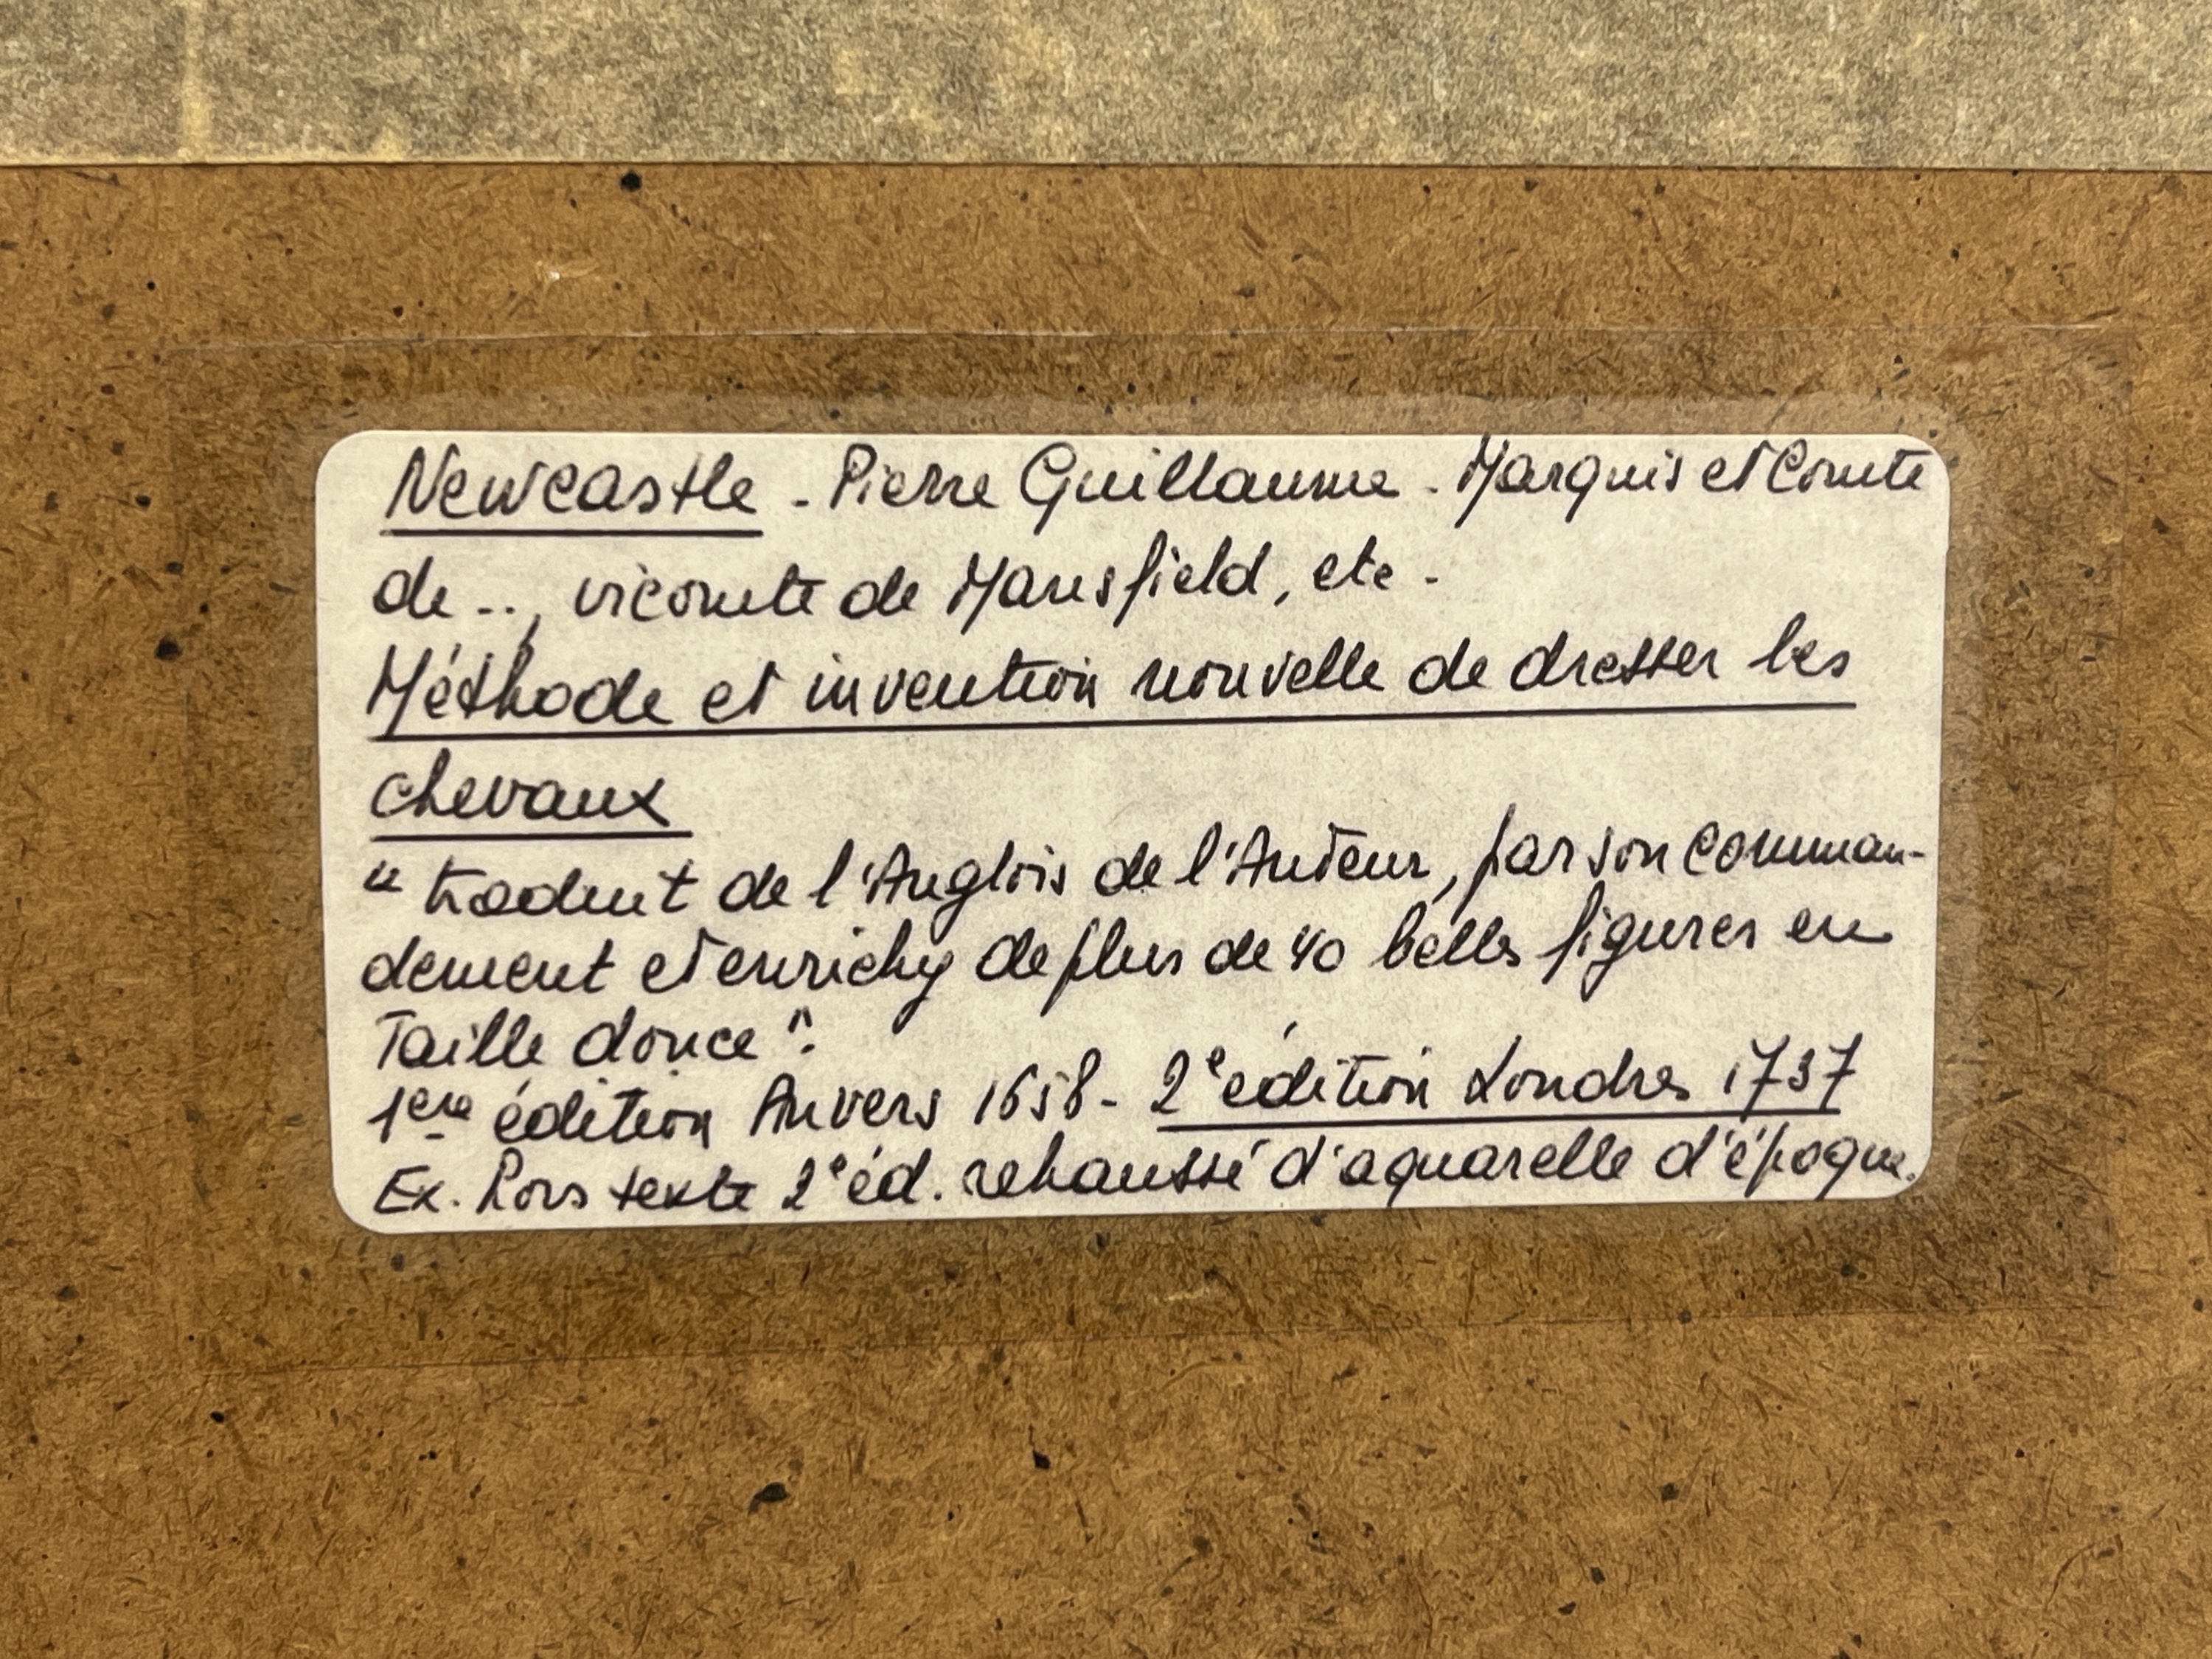 Newcastle - Pierre Guillaume - Marquis et Comte
de .., vicomte de Mansfield, etc -
Méthode et invention nouvelle de dresser les
chevaux
"traduit de l'Anglois de l'Auteur, par son comman-
dement et enrichy de plus de 40 belles figures en
Taille douce".
1ère édition Anvers 1658 - 2e édition Londres 1737
Ex. hors texte 2e éd. rehaussé d'aquarelle d'époque.